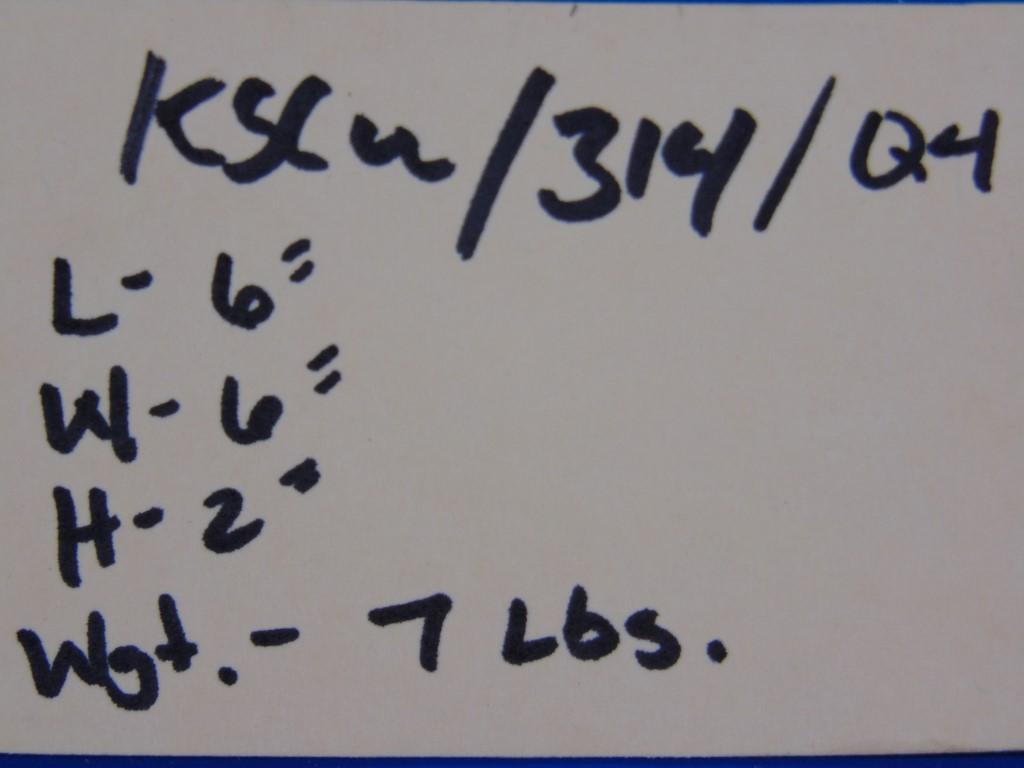 /314/Q4
L- 6"
W- 6"
H- 2"
Wgt. - 7 Lbs.